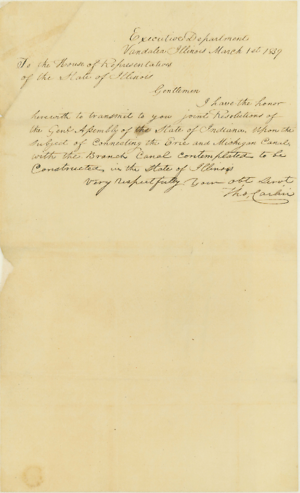 Executive Department
Vandalia Illinois March 1st 1839
To the House of Representatives
of the State of Illinois
Gentlemen
I have the honor
herewith to transmit to you joint Resolutions of
the Genl Assembly of the State of Indiana Upon the
subject of Connecting the Erie and Michigan Canal,
with the Branch Canal Contemplated to be
Constructed, in the State of Illinois
Very Respectfully Your obt Servt
Tho. Carlin